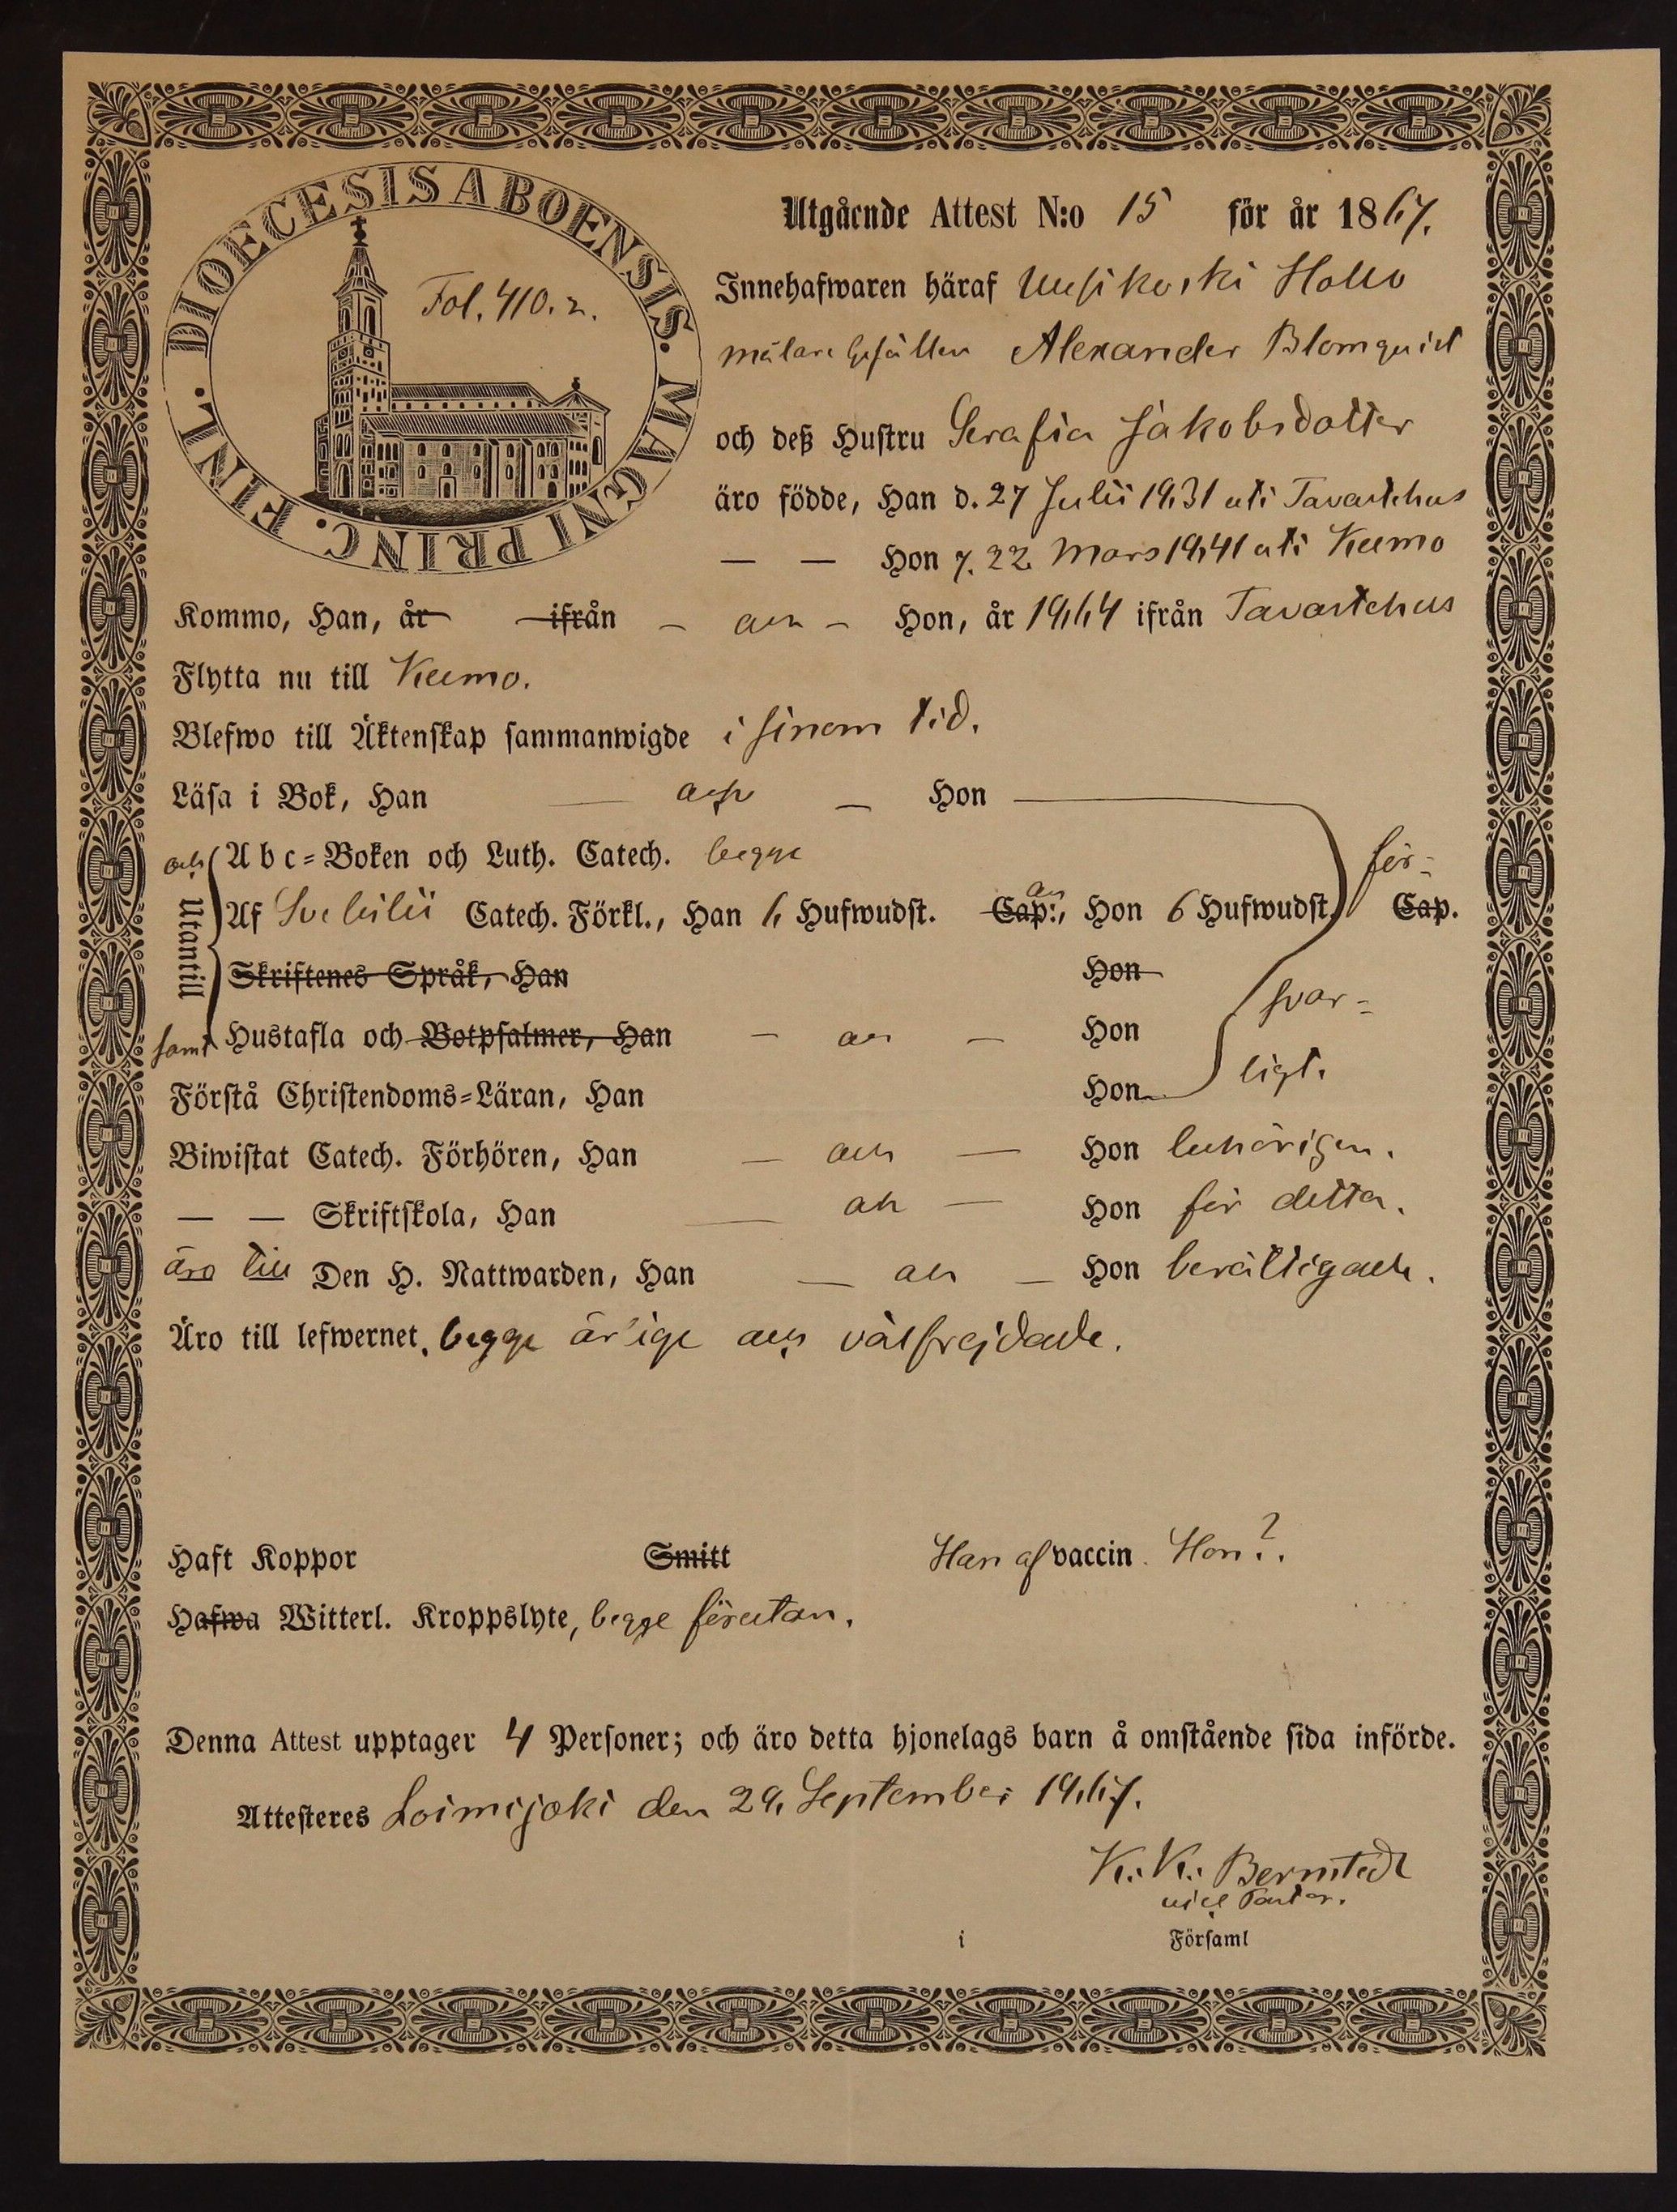 DIOECESIS ABOENSIS. MAGNI PRINC. FINL.
Fol. 410. 2.
Utgående Attest N:o 15 för år 1867.
Innehafwaren häraf Uusikoski Hollo
målare Gesällen Alexander Blomquist
och deß Hustru Serafia Jakobsdotter
äro födde, Han d. 27 Julii 1831 uti Tavastehus
— — Hon d. 22 Mars 1841 uti Kumo
Kommo, Han, år ifrån – och – Hon, år 1864 ifrån Tavastehus
Flytta nu till Kumo.
Blefwo till Äktenskap sammanwigde i sinom tid.
Läsa i Bok, Han — och – Hon —
och A b c=Boken och Luth. Catech. begge
Utantill
Af Svebilii Catech. Förkl., Han 6 Hufwudst. Cap:, och Hon 6 Hufwudst. Cap.
för=
Skriftenes Språk, Han Hon
svar=
samt Hustafla och Botpsalmer, Han – och – Hon
Förstå Christendoms=Läran, Han Hon
ligt.
Biwistat Catech. Förhören, Han — och — Hon behörigen.
— — Skriftskola, Han — och — Hon för detta.
äro till Den H. Nattwarden, Han — och – Hon berättigade.
Äro till lefwernet, begge ärlige och välfrejdade.
Haft Koppor Smitt Han af vaccin. Hon ?.
Hafwa Witterl. Kroppslyte, begge förutan.
Denna Attest upptager 4 Personer; och äro detta hjonelags barn å omstående sida införde.
Attesteres Loimijoki den 29 September 1867.
K. K. Bernstedt
vice Pastor.
i Församl